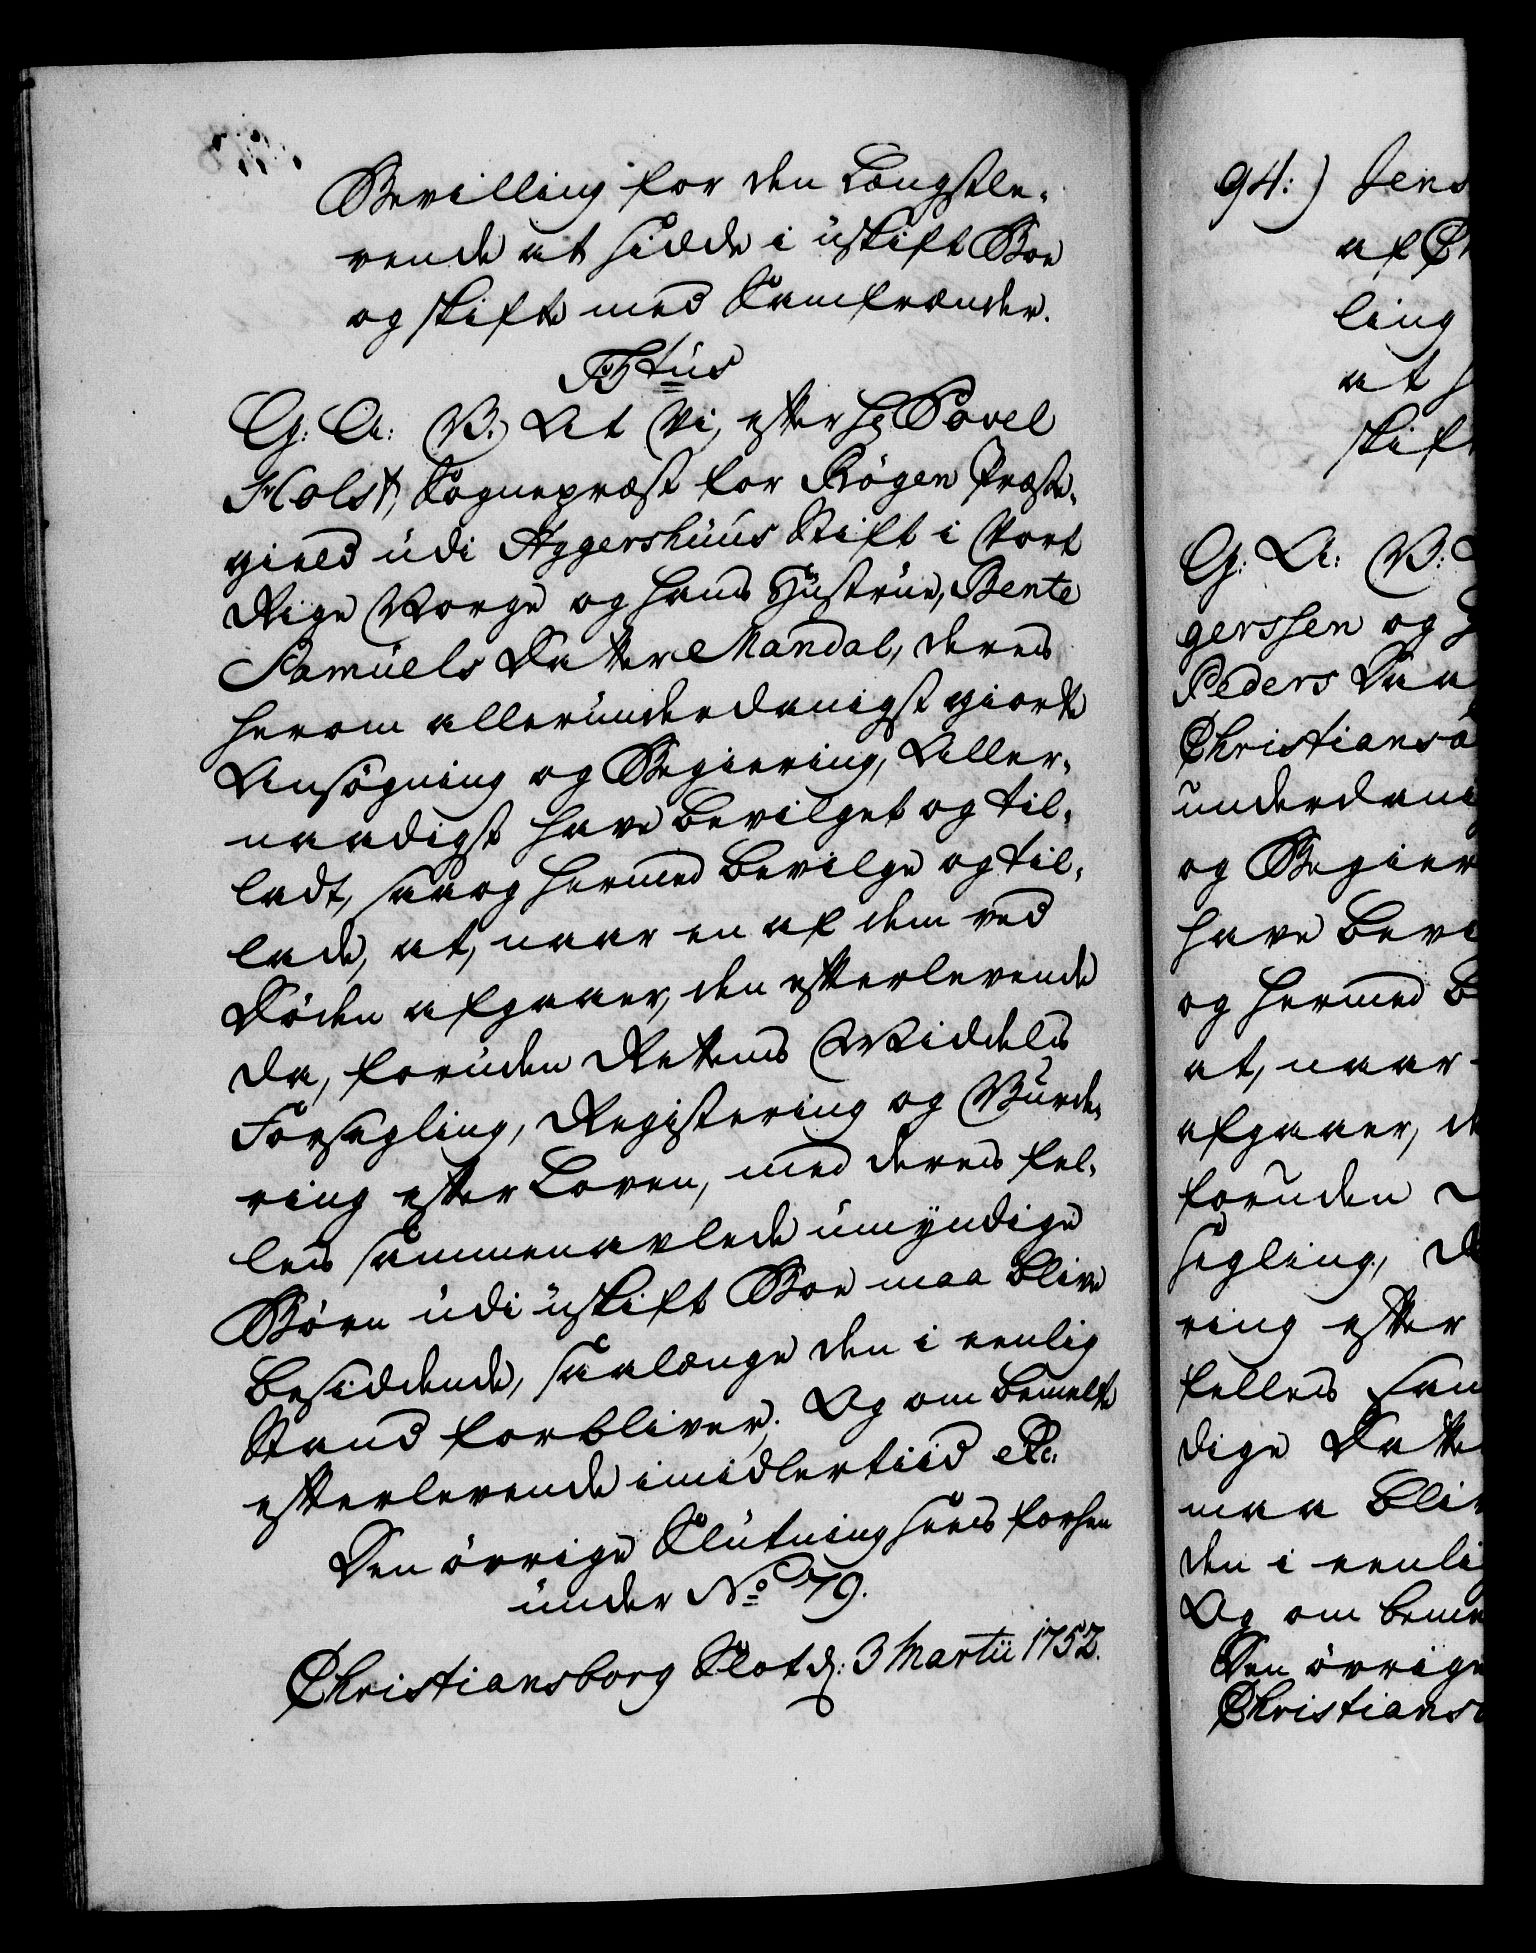 Bevilling for den Længstle-
vende at sidde i uskift Boe
og skifte med Samfrænder.
F5tus
G: A: V: At Vi, efter Hr Povel
Holst, Sognepræst for Røgen Præste-
gield udi Aggershuus Stift i Vort
Rige Norge og hans Hustrue, Bente
Samuels Datter Mandal, deres
herom allerunderdanigst giorte
Ansøgning og Begiering, Aller-
naadigst have bevilget og til-
ladt, saa og hermed bevilge og til-
lade, at, naar en af dem ved
Døden afgaaer, den efterlevende
da, foruden Rettens Middels
Forsegling, Registering og Vurde-
ring efter Loven, med deres fel-
les sammenavlede umyndige
Børn udi uskift Boe maa blive
besiddende, saalænge den i eenlig
Stand forbliver; Og om bemelte
efterlevende imidlertiid etc:
Den øvrige Slutning sees forhen
under No 79.
Christiansborg Slot d: 3 Martii 1752.
94:) Jens
af Ch
ling
at s
skift
G: A: V:
gerssen og
Peders Daa
Christiansa
underdanig
og Begier
have bevi
og hermed B
at, naar
afgaaer, de
foruden
segling, R
ring efter
felles sam
dige Datte
maa bliv
den i eenlig
Og om beme
Den øvrige
Christians